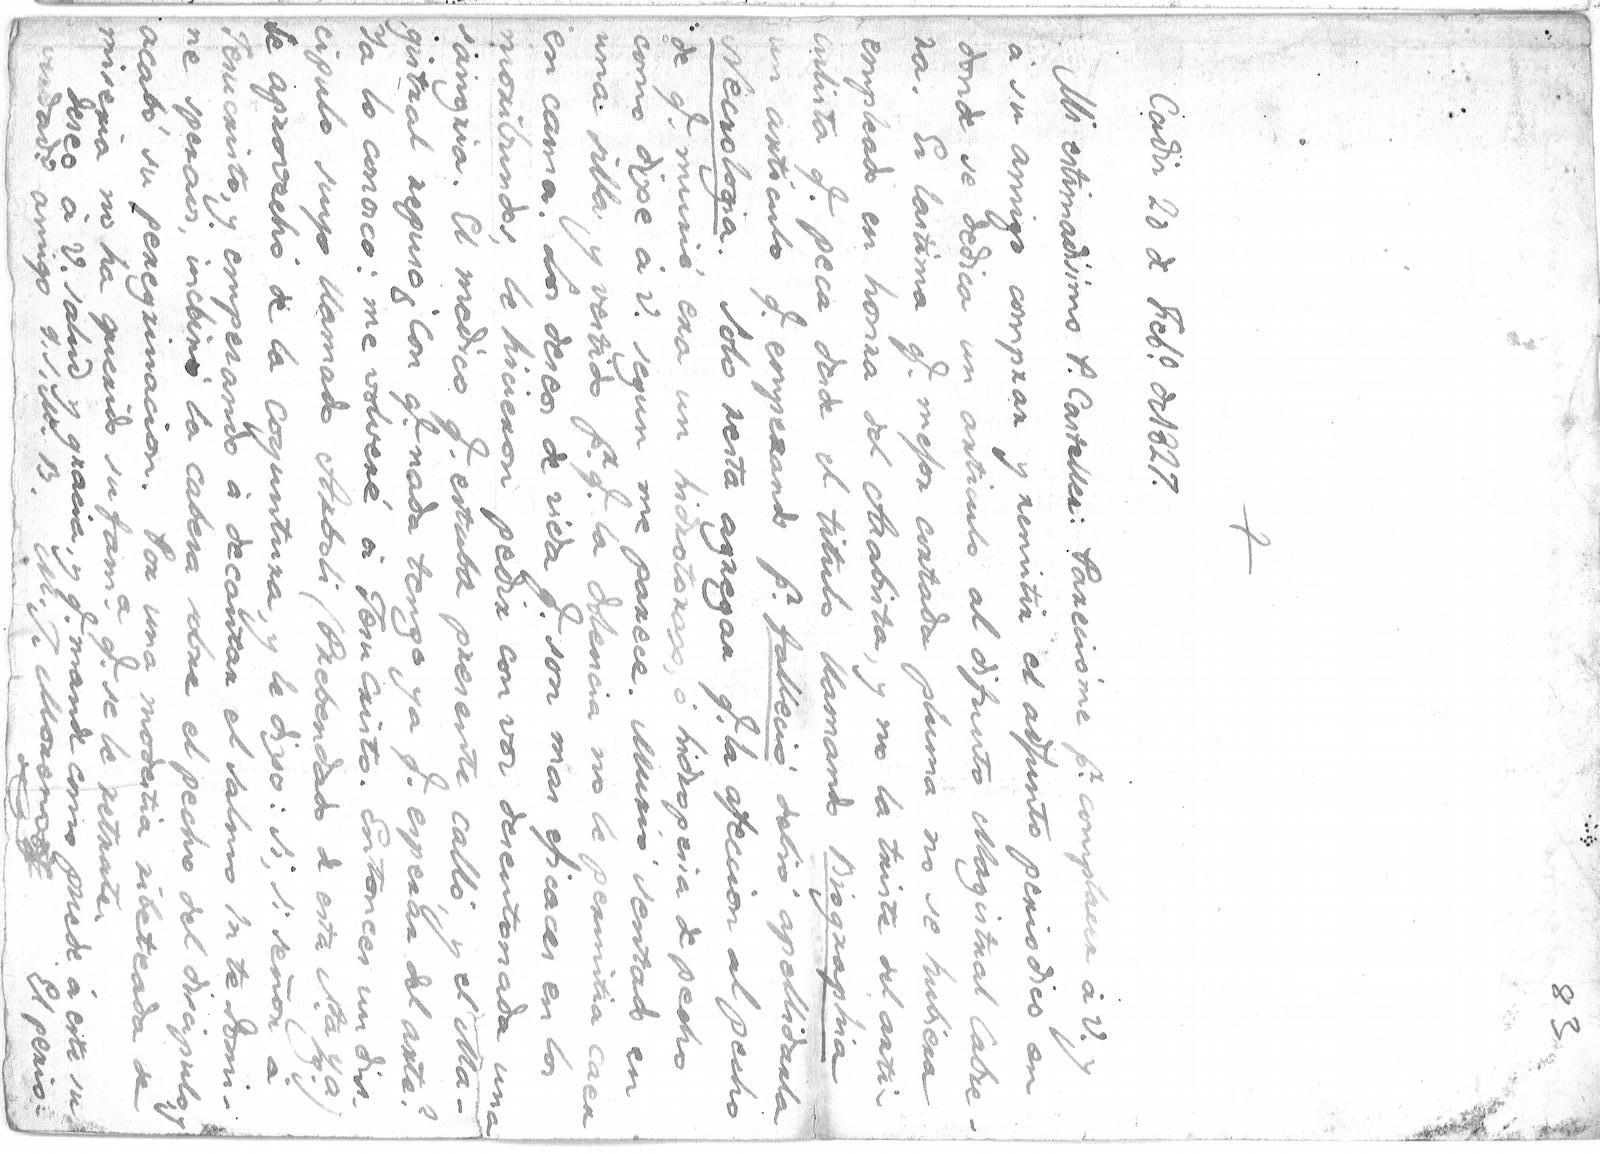 83
Cadiz 20 de Feb.º de 1827.
Mi estimadisimo P. Cartellá: Pareciome p.ª complacer à V. y
a su amigo comprar y remitir el adjunto periodico en
donde se dedica un articulo al difunto Magistral Cabre-
ra. Es lastima q. mejor cortada pluma no se hubiera
empleado en honra del Arabita, y no la triste del arti-
culista q. peca desde el titulo llamando Biographia
un articulo q. empezando p.r falleció debió apellidarla
Necrologia. Solo resta agregar q. la afeccion al pecho
de q. murió era un hidrotorax, o hidropesia de pecho
como dixe à V. segun me parece. Murió sentado en
una silla, y vestido p.r q. la dolencia no le permitia caer
en cama. Los deseos de vida q. son mas eficaces en los
moribundos, le hicieron pedir con voz desentonada una
sangria. El medico q. estaba presente calló, y el Ma-
gistral repuso: Con q. nada tengo ya q. esperar del arte?
Ya lo conosco: me volveré à Jesu Cristo. Entonces un dis-
cipulo suyo llamado Arboli (Prebendado de esta Sta Yg.ª)
se aprovechó de la coyuntura, y le dixo: si, si señor à
Jesucristo, y empezando à decantar el salmo In te Domi-
ne speravi, inclinó la cabeza sobre el pecho del discipulo y
acabó su peregrinacion. Por una modestia ribeteada de
miseria no ha querido su fam.ª q. se le retrate.
Deseo à V. salud y gracia, y q. mande como puede à este su
verdad.º amigo q. s. m. B. M. J. Moreno El perio-